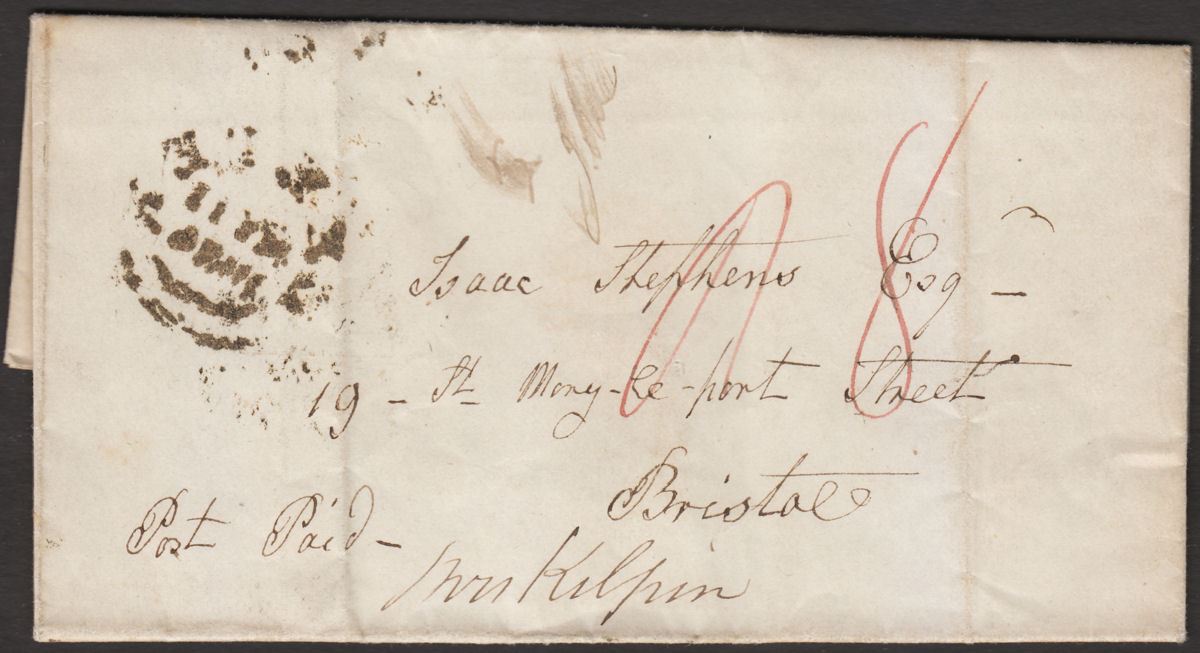 Isaac Stephens Esq
19 - St Mary-le-port Street
Bristol
Post Paid -
Mrs Kilpin
8